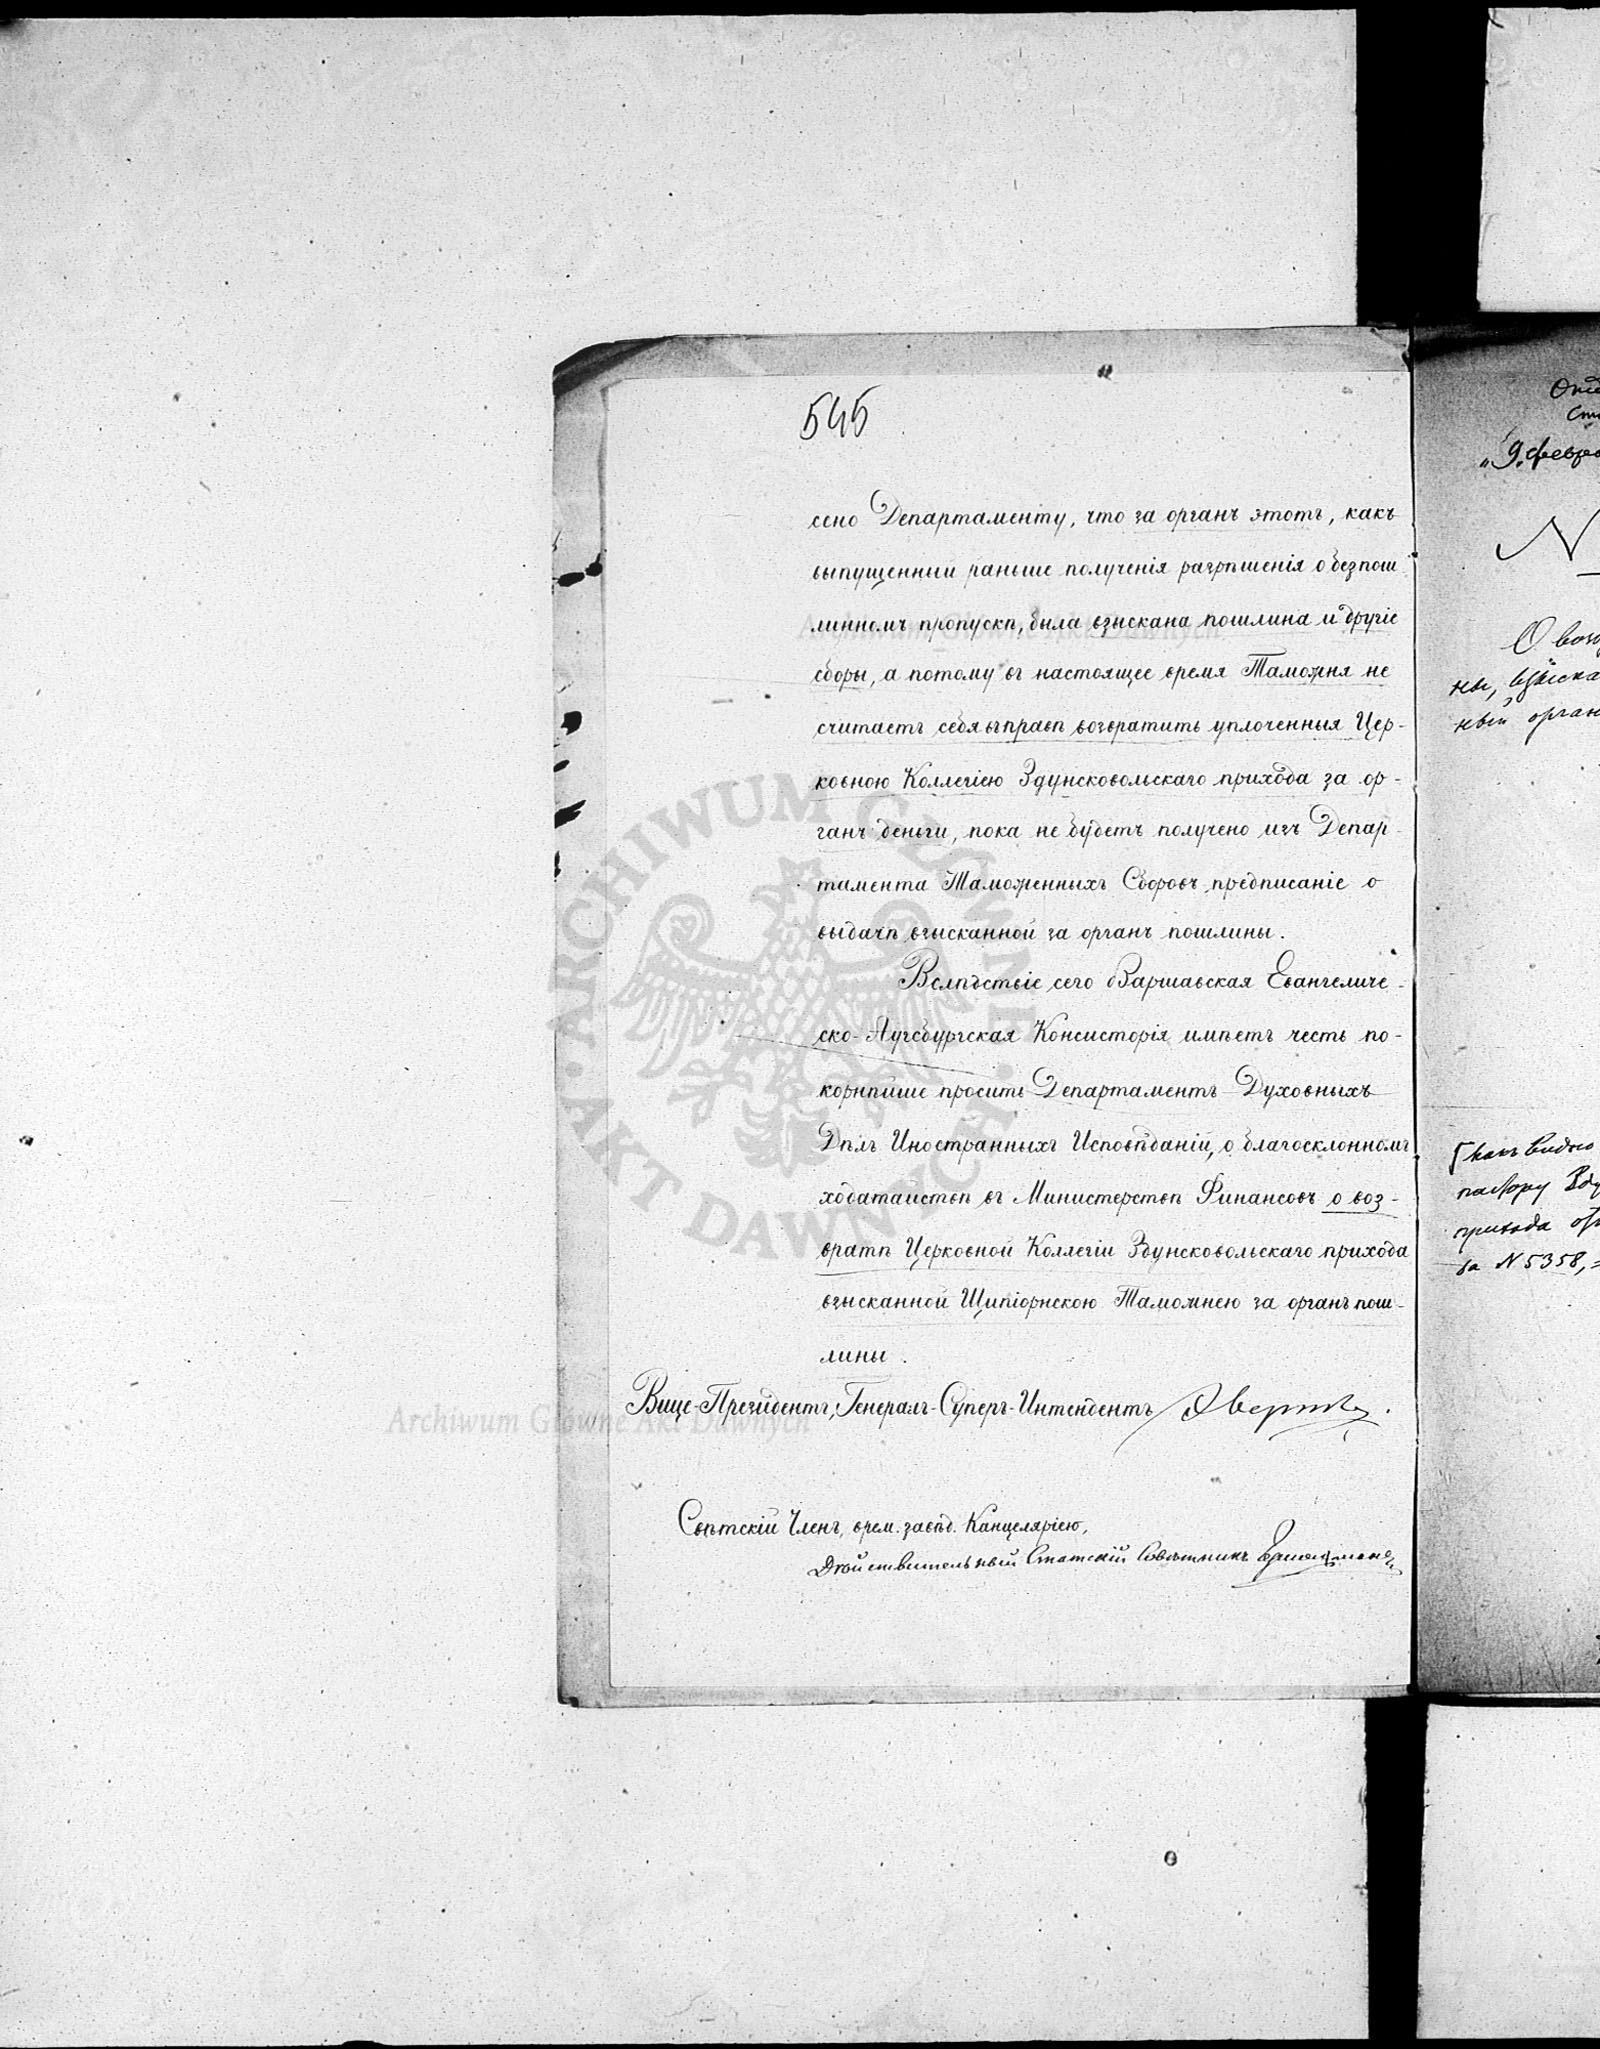 545
сено Департаменту, что за органъ этотъ, какъ
выпущенный раньше полученія разрѣшенія о безпош
линномъ пропускѣ, была взыскана пошлина и другіе
сборы, а потому въ настоящее время Таможня не
считаетъ себя въ правѣ возвратить уплоченныя Цер-
ковною Коллегіею Здунсковольскаго прихода за ор-
ганъ деньги, пока не будетъ получено изъ Депар-
тамента Таможенныхъ Сборовъ предписаніе о
выдачѣ взысканной за органъ пошлины.
Вслѣдствіе сего Варшавская Евангеличе-
ско-Аугсбургская Консисторія имѣетъ честь по-
корнѣйше просить Департаментъ Духовныхъ
Дѣлъ Иностранныхъ Исповѣданій, о благосклонномъ
ходатайствѣ въ Министерствѣ Финансовъ о воз-
вратѣ Церковной Коллегіи Здунсковольскаго прихода
взысканной Щипіорнскою Таможнею за органъ пош-
лины.
Вице-Президентъ, Генералъ-Суперъ-Интендентъ
Свѣтскій Членъ, врем. завѣд. Канцеляріею,
Дѣйствительный Статскій Совѣтникъ
"9. февра
N
О возв
ны, взыска
ный орган
какъ видно
пастору Зду
прихода
за N 5358,
ARCHIWUM GŁÓWNE AKT DAWNYCH
Archiwum Główne Akt Dawnych
Archiwum Główne Akt Dawnych